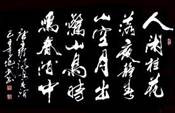 人閑桂花
落夜静春
山空月出
驚山鳥時
鳴春澗中